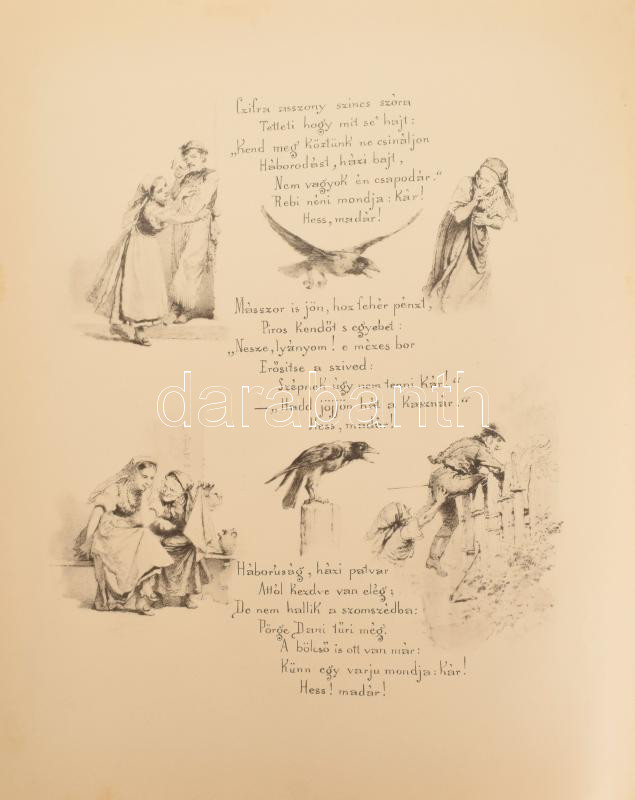 Czifra asszony szincs szóra
Tetteti hogy mit se' hajt:
„Kend meg' köztünk ne csináljon
Háborodást, házi bajt,
Nem vagyok én csapodár."
Rebi néni mondja: Kár!
Hess, madár!
Másszor is jön, hoz fehér pénzt,
Piros kendőt s egyebet:
„Nesze, lyányom! e mézes bor
Erősítse a szived:
Szépnek úgy nem tenni kár!"
—„Hadd jőjjön hát a kasznár."
Hess, madár!
darabanth
Háboruság, házi patvar
Attól kezdve van elég;
De nem hallik a szomszédba:
Pörge Dani türi még.
A bölcső is ott van már:
Künn egy varju mondja: kár!
Hess! madár!